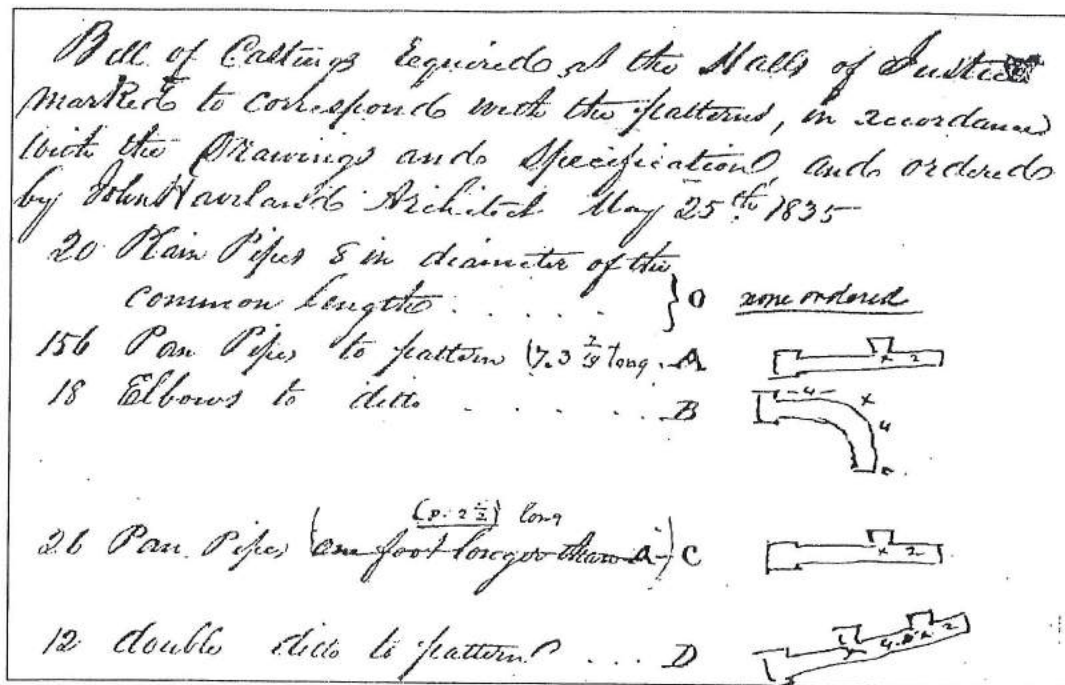 Bill of Castings Required at the Halls of Justice
marked to correspond with the patterns, in accordance
with the Drawings and Specification, and ordered
by John Haviland Architect May 25th 1835
20 Plain Pipes 8 in diameter of the
common length . . . . . . } O none ordered
156 Pan Pipes to pattern (7.3 long . A x 2
18 Elbows to ditto . . . . . . B -4- x 4
long
26 Pan Pipes (one foot longer than A) C x 2
12 double ditto to pattern . . . D